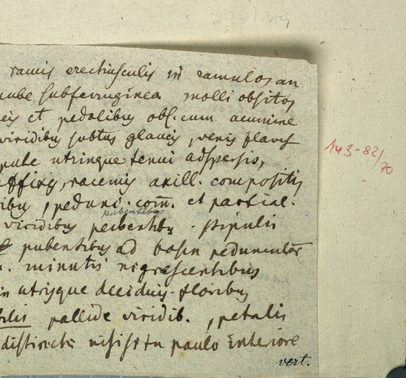 ramis erectiusculis in ramulos an
pube subferruginea molli obsitos
et pedalibus obl. cum acumine
viridibus subtus glaucis, venis flavis
pube utrinque tenui adspersis,
racemis axill. compositis
ibus, pedunc. com. et partial.
pubentibus
viridibus pubentib. stipulis
pubentibus ad basin pedunculor
minutis nigrescentibus
in utrisque deciduis. floribus
pallide viridib., petalis
distincte nisi situ paulo interiore
vert.
143-82/70